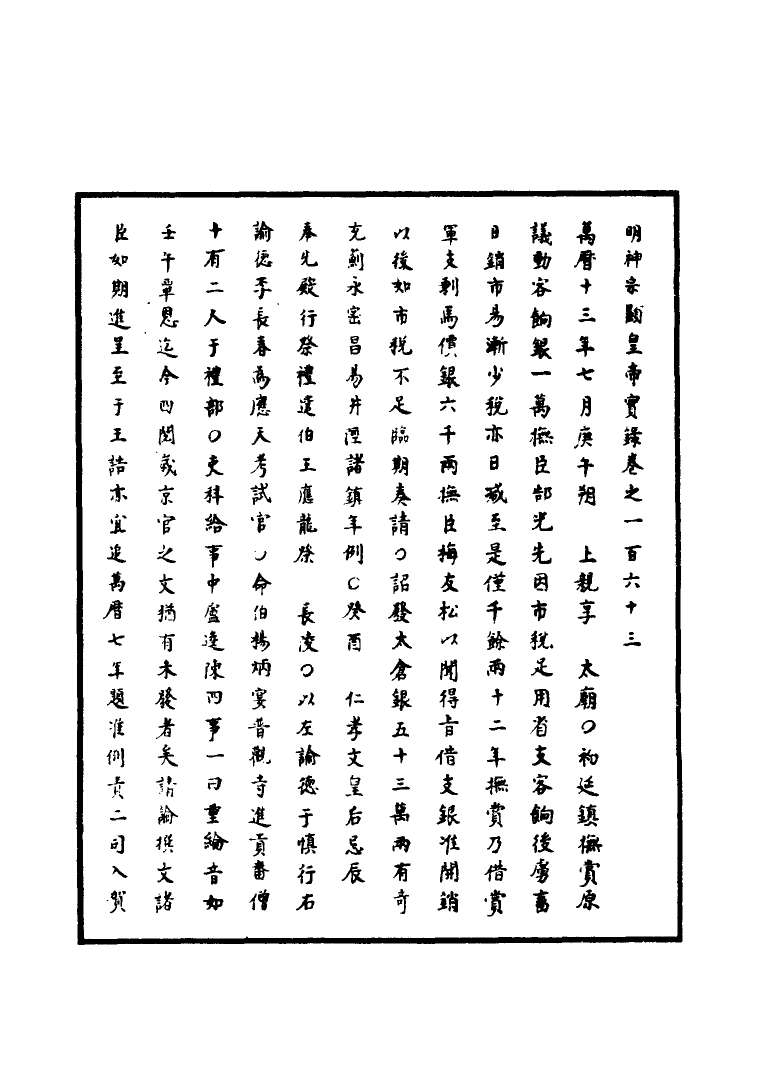 明神宗顯皇帝實錄卷之一百六十三
萬曆十三年七月庚午朔　上親享　太廟〇初延鎮撫賞原
議動客餉銀一萬撫臣郜光先因市稅足用省支客餉後虜畜
日銷市易漸少稅亦日减至是僅千餘兩十二年撫賞乃借賞
軍支剩馬價銀六千兩撫臣梅友松以聞得旨借支銀准開銷
以後如市稅不足臨期奏請〇詔發太倉銀五十三萬兩有奇
充薊永密昌易井涇諸鎮年例〇癸酉　仁孝文皇后忌辰
奉先殿行祭禮遣伯王應龍祭　長凌〇以左諭德于慎行右
諭德李長春為應天考試官〇命伯楊炳宴普觀寺進貢番僧
十有二人于禮部〇吏科給事中盧逵陳四事一曰重綸音如
壬午覃恩迄今四閱歲京官之文猶有未發者矣請諭撰文諸
臣如期進呈至于王誥亦宜追萬曆七年題准例責二司入賀